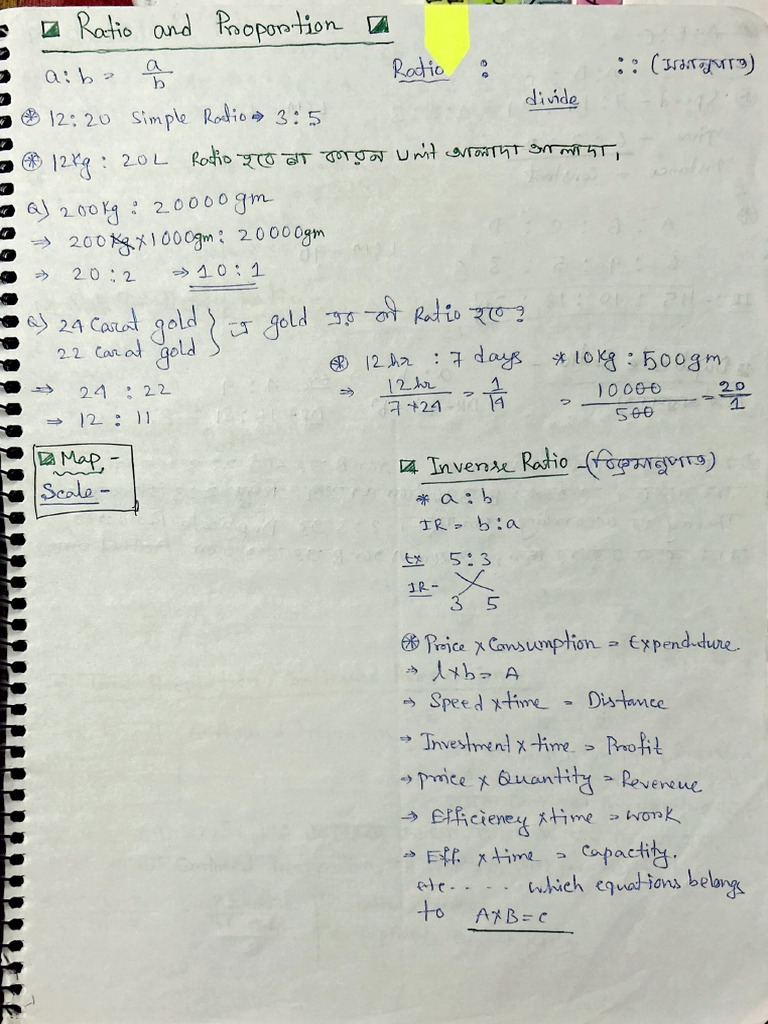 Ratio and Proportion
a:b = a/b
Ratio : :: (সমানুপাত)
divide
12:20 Simple Ratio ⇒ 3:5
12Kg : 20L Ratio হবে না কারন Unit আলাদা আলাদা,
Q) 200Kg : 20000gm
⇒ 200Kg×1000gm : 20000gm
⇒ 20:2 ⇒ 10:1
Q) 24 Carat gold
22 Carat gold } gold এর কী Ratio হবে?
⇒ 24 : 22
⇒ 12 : 11
12hr : 7 days
⇒ 12hr/7*24 = 1/14
* 10Kg : 500gm
= 10000/500 = 20/1
Map -
Scale -
Inverse Ratio - (ব্যস্তানুপাত)
* a:b
IR = b:a
Ex 5:3
IR- 3 5
Price × Consumption = Expenduture.
⇒ l×b = A
⇒ Speed × time = Distance
⇒ Investment × time = Profit
⇒ price × Quantity = Revereue
⇒ Efficiency × time = work
⇒ Eff. × time = Capactity.
etc..... which equations belongs
to A×B=c